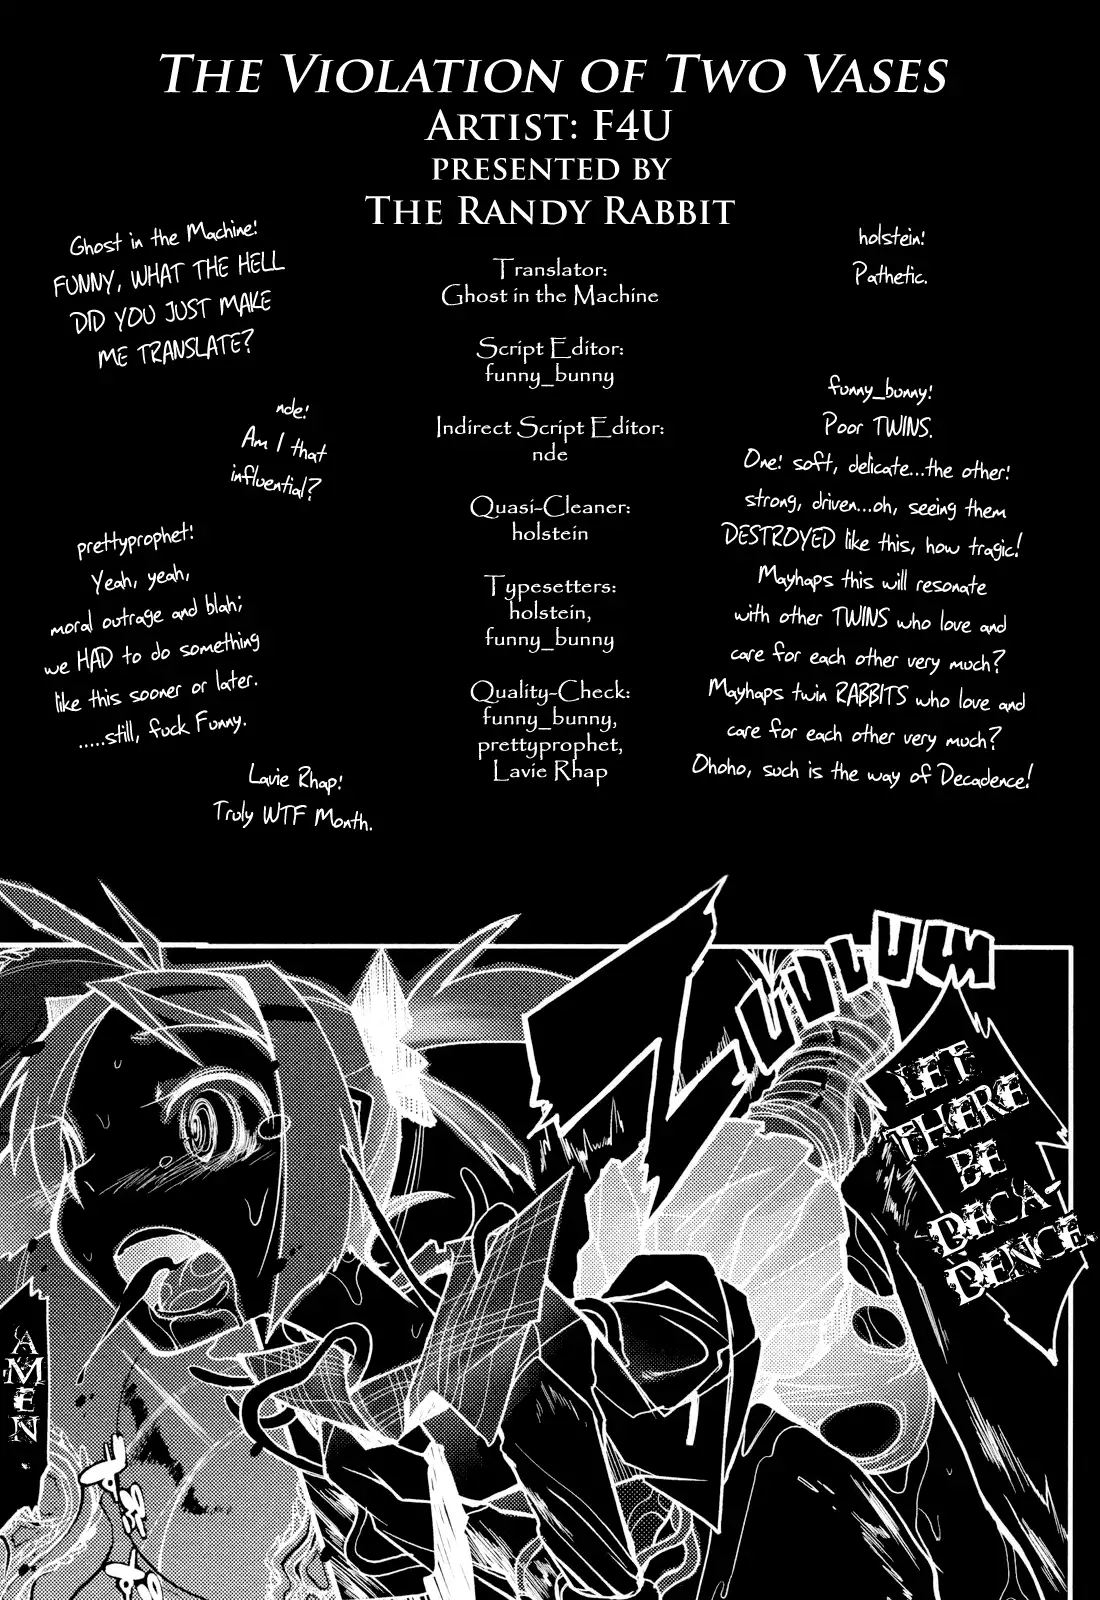 The Violation of Two Vases
Artist: F4U
presented by
The Randy Rabbit
Ghost in the Machine:
FUNNY, WHAT THE HELL
DID YOU JUST MAKE
ME TRANSLATE?
nde:
Am I that
influential?
prettyprophet:
Yeah, yeah,
moral outrage and blah;
we HAD to do something
like this sooner or later.
.....still, fuck Funny.
Lavie Rhap:
Truly WTF Month.
Translator:
Ghost in the Machine
Script Editor:
funny_bunny
Indirect Script Editor:
nde
Quasi-Cleaner:
holstein
Typesetters:
holstein,
funny_bunny
Quality-Check:
funny_bunny,
prettyprophet,
Lavie Rhap
holstein:
Pathetic.
funny_bunny:
Poor TWINS.
One: soft, delicate...the other:
strong, driven...oh, seeing them
DESTROYED like this, how tragic!
Mayhaps this will resonate
with other TWINS who love and
care for each other very much?
Mayhaps twin RABBITS who love and
care for each other very much?
Ohoho, such is the way of Decadence!
LET
THERE
BE
DECA-
DENCE.
AMEN.